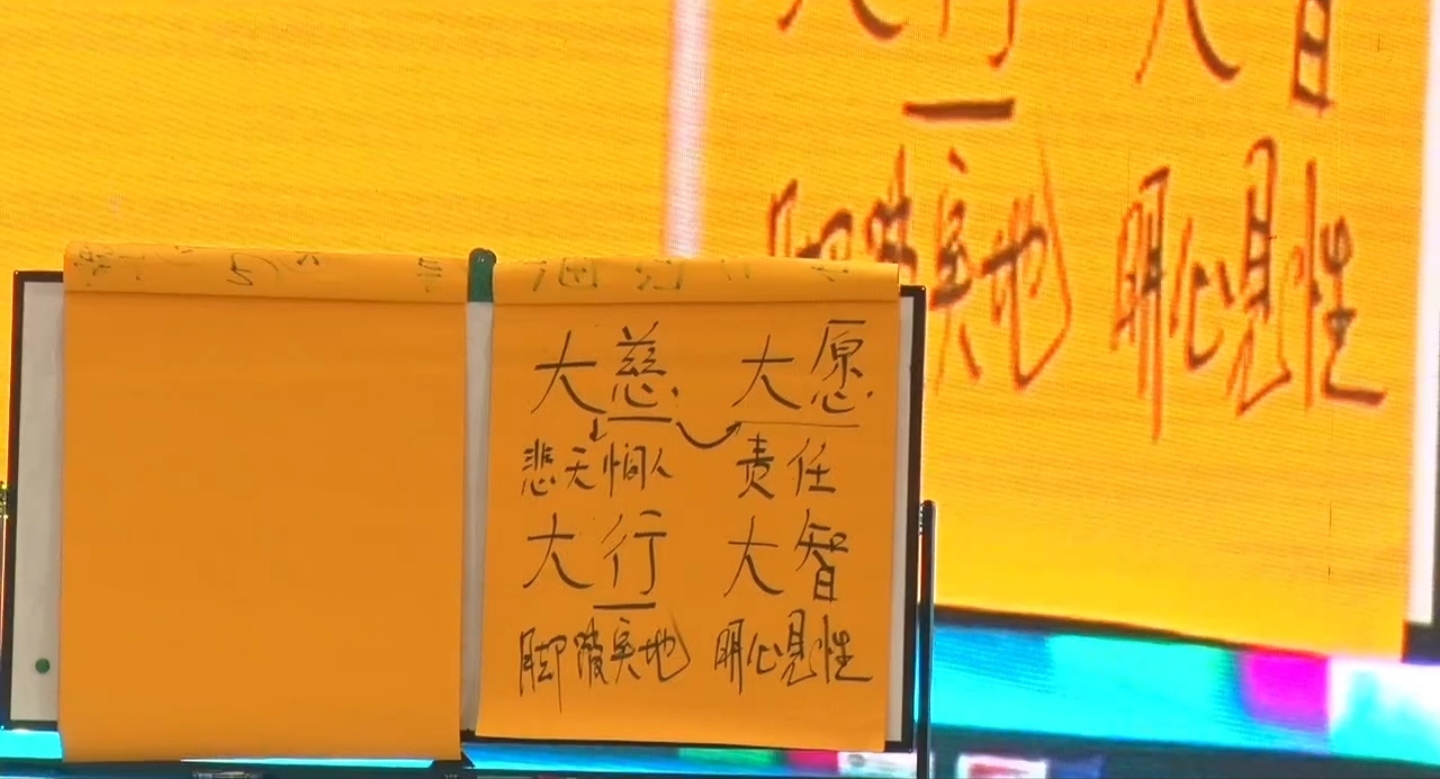 大慈 大愿
悲天悯人 责任
大行 大智
脚踏实地 明心见性
大行 大智
脚踏实地 明心见性